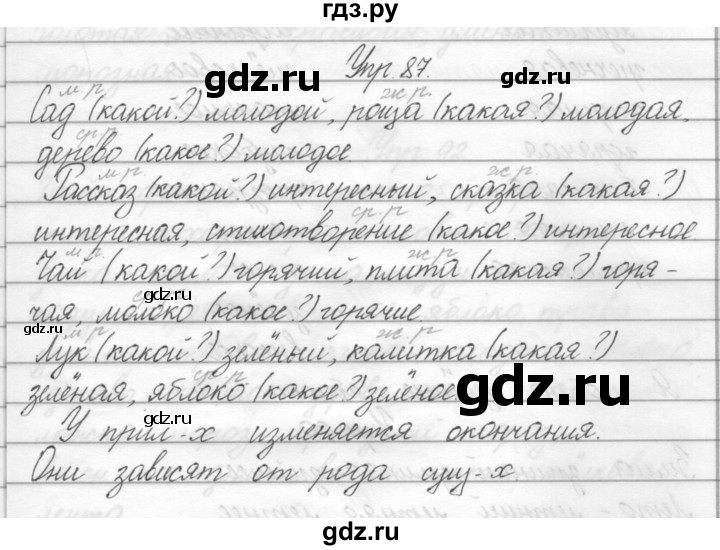 гдз.ру
Упр. 87.
м.р. ж.р.
Сад (какой?) молодой, роща (какая?) молодая,
ср.р.
дерево (какое?) молодое
м.р. ж.р.
Рассказ (какой?) интересный, сказка (какая?)
ср.р.
интересная, стихотворение (какое?) интересное
м.р. ж.р.
Чай (какой?) горячий, плита (какая?) горя-
чая, молоко (какое?) горячие
м.р. ж.р.
Лук (какой?) зелёный, калитка (какая?)
ср.р.
зелёная, яблоко (какое?) зелёное
У прил-х изменяется окончания.
Они зависят от рода сущ-х
gdz.ru
gdz.ru
gdz.ru
gdz.ru
gdz.ru
gdz.ru
gdz.ru